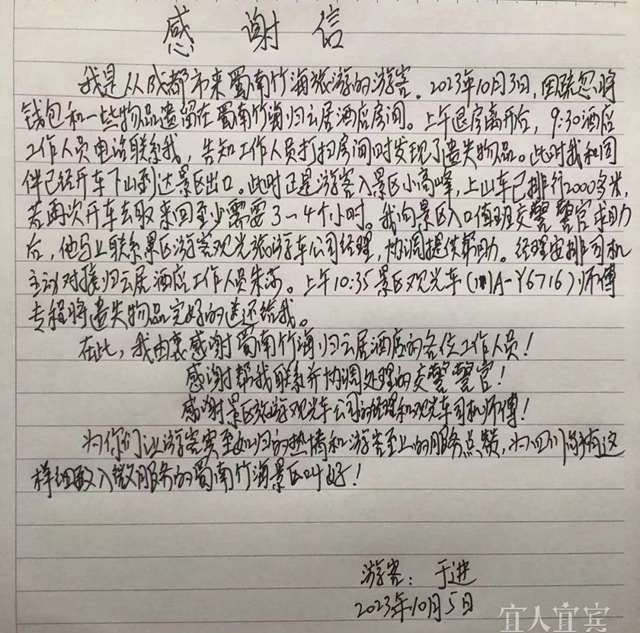 感谢信
我是从成都市来蜀南竹海旅游的游客。2023年10月3日，因疏忽将
钱包和一些物品遗留在蜀南竹海归云居酒店房间。上午退房离开后，9:30酒店
工作人员电话联系我，告知工作人员打扫房间时发现了遗失物品。此时我和同
伴已经开车下山到达景区出口。此时正是游客入景区小高峰，上山车已排行2000多米，
若再次开车去取来回至少需要3～4个小时。我向景区入口值班交警警官求助
后，他马上联系景区游客观光旅游车公司经理，协调提供帮助。经理安排司机
主动对接归云居酒店工作人员朱。上午10:35景区观光车（川A-Y6716）师傅
专程将遗失物品完好的送还给我。
在此，我由衷感谢蜀南竹海归云居酒店的各位工作人员！
感谢帮我联系并协调处理的交警警官！
感谢景区旅游观光车公司的经理和观光车司机师傅！
为你们让游客宾至如归的热情和游客至上的服务点赞，为四川能有这
样细致入微服务的蜀南竹海景区叫好！
游客：于进
2023年10月5日
宜人宜宾